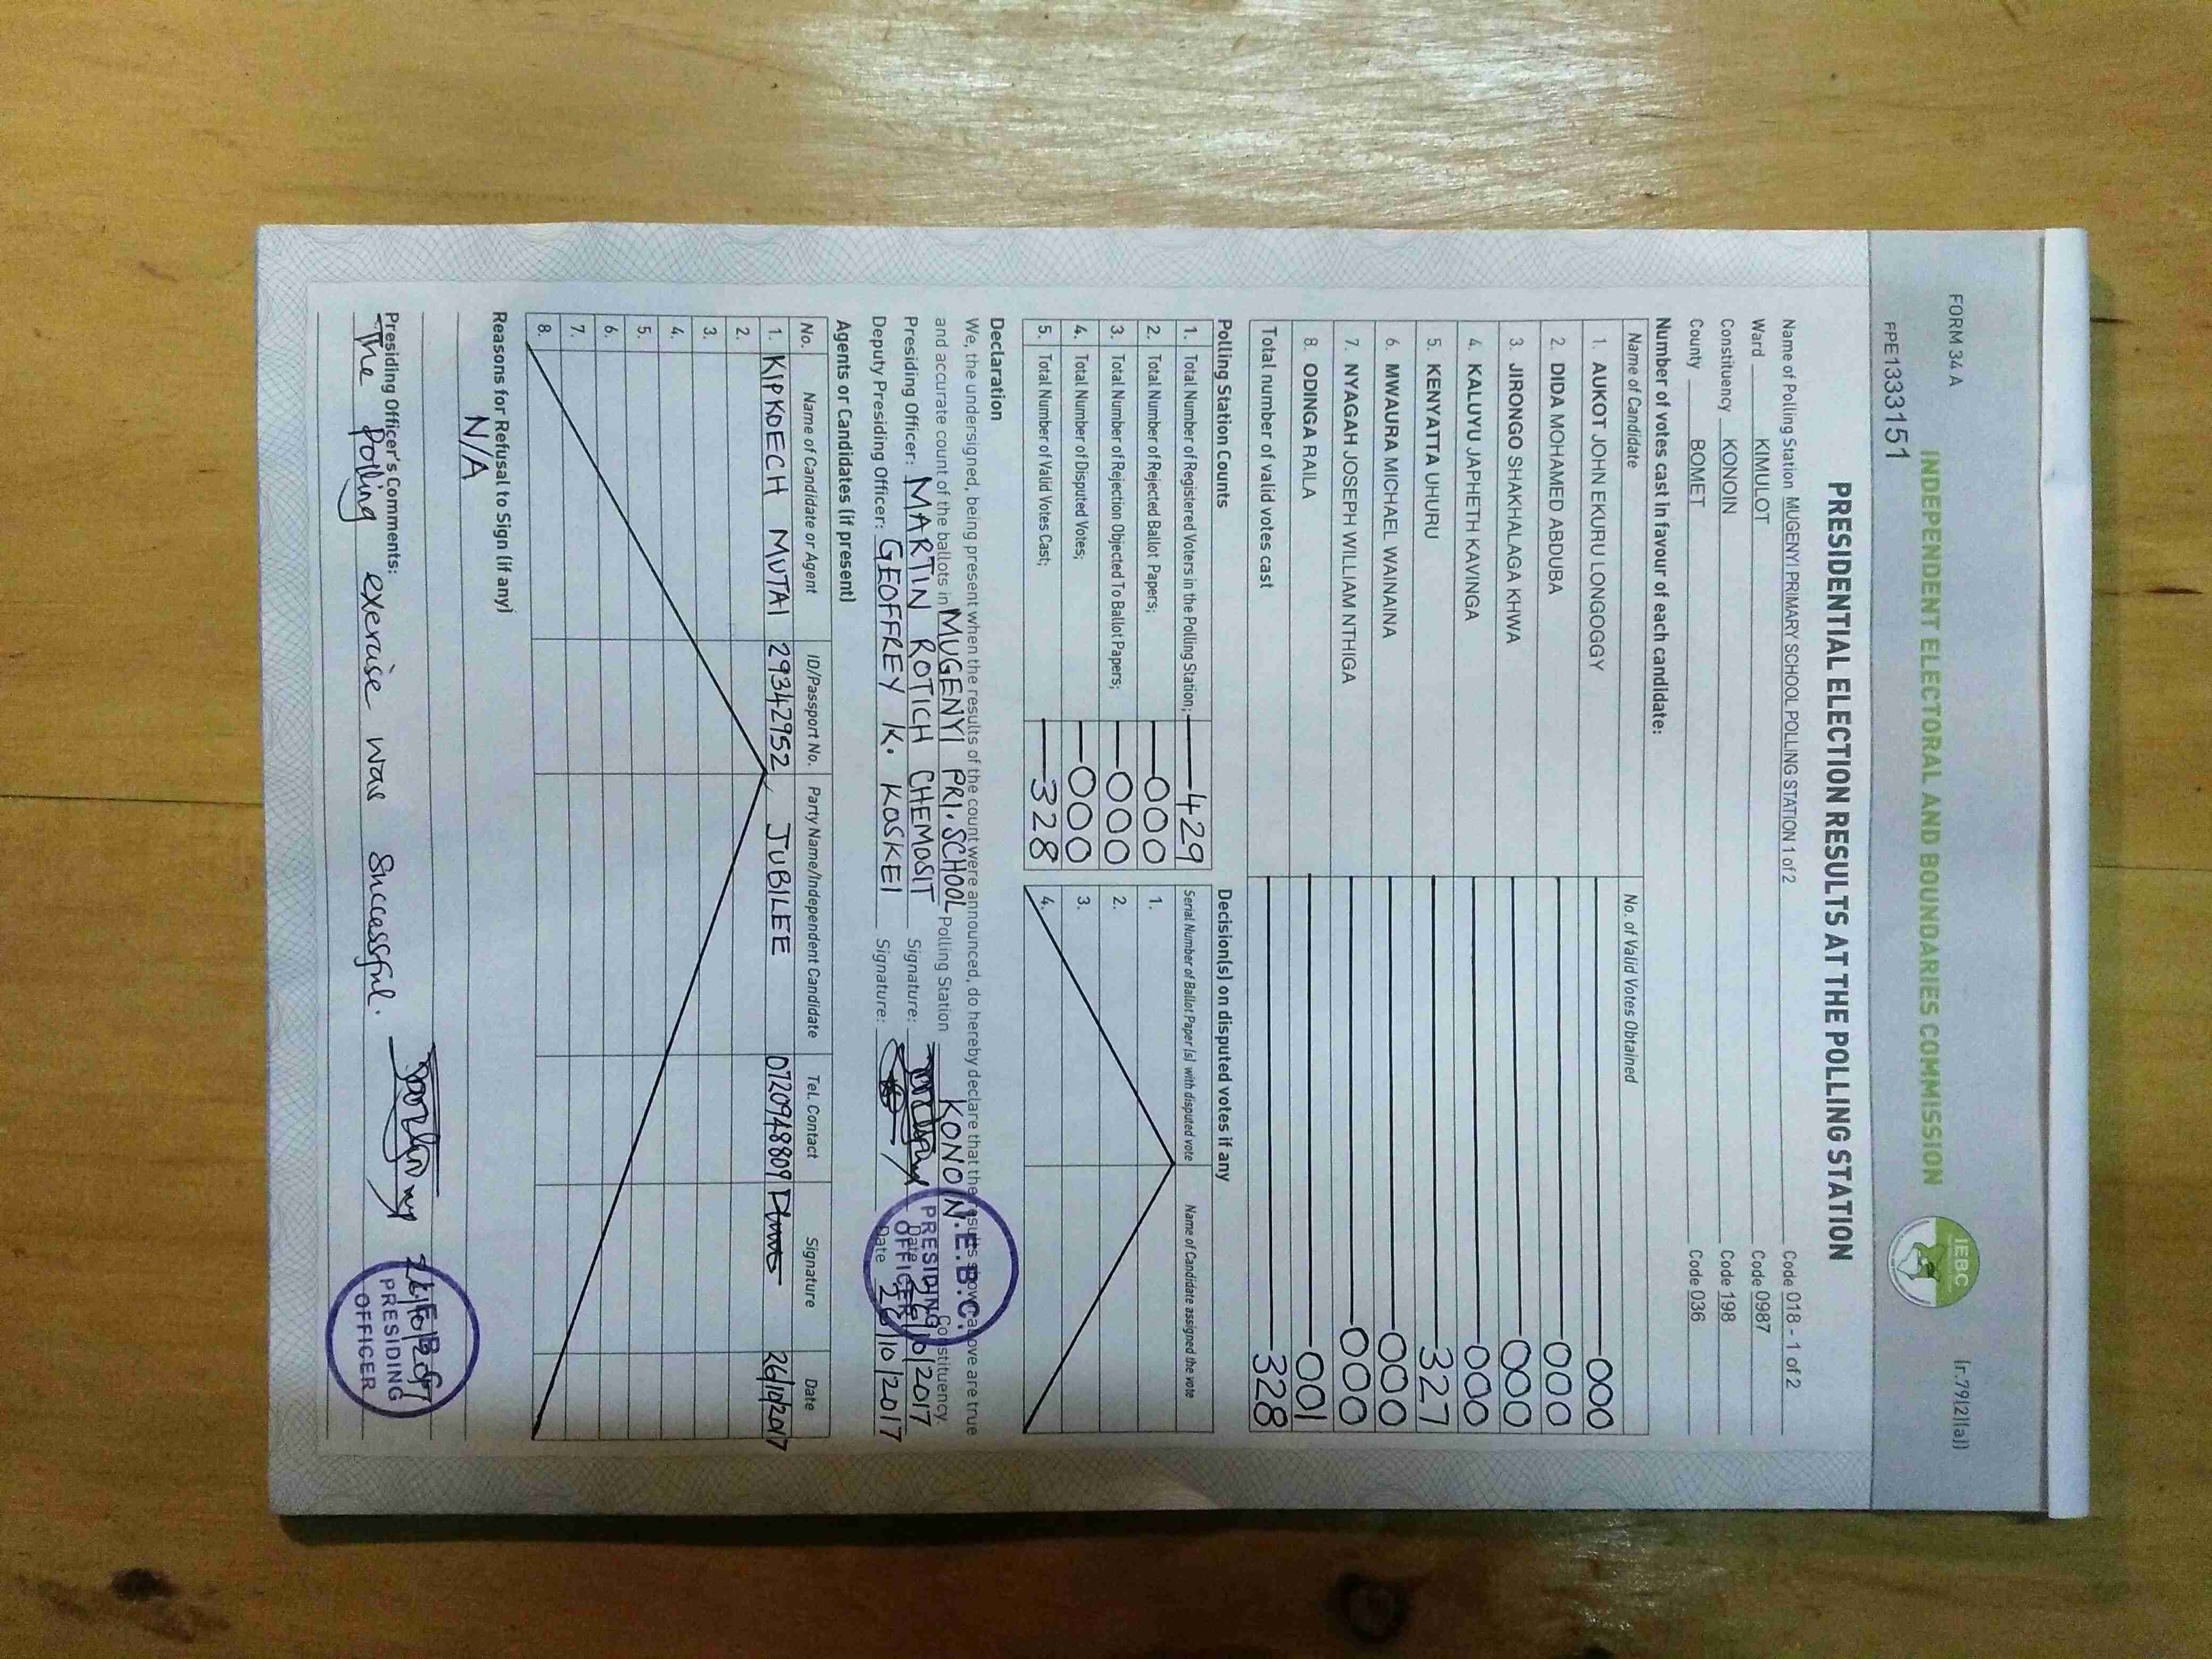 FORM 34 A
(r.79(2)(a))
FPE1333151
INDEPENDENT ELECTORAL AND BOUNDARIES COMMISSION
IEBC
PRESIDENTIAL ELECTION RESULTS AT THE POLLING STATION
Name of Polling Station MUGENYI PRIMARY SCHOOL POLLING STATION 1 of 2 Code 018 - 1 of 2
Ward KIMULOT Code 0987
Constituency KONOIN Code 198
County BOMET Code 036
Number of votes cast in favour of each candidate:
Name of Candidate No. of Valid Votes Obtained
1. AUKOT JOHN EKURU LONGOGGY 000
2. DIDA MOHAMED ABDUBA 000
3. JIRONGO SHAKHALAGA KHWA 000
4. KALUYU JAPHETH KAVINGA 000
5. KENYATTA UHURU 327
6. MWAURA MICHAEL WAINAINA 000
7. NYAGAH JOSEPH WILLIAM NTHIGA 000
8. ODINGA RAILA 001
Total number of valid votes cast 328
Polling Station Counts
1. Total Number of Registered Voters in the Polling Station; 429
2. Total Number of Rejected Ballot Papers; 000
3. Total Number of Rejection Objected To Ballot Papers; 000
4. Total Number of Disputed Votes; 000
5. Total Number of Valid Votes Cast; 328
Decision(s) on disputed votes if any
Serial Number of Ballot Paper (s) with disputed vote Name of Candidate assigned the vote
1.
2.
3.
4.
Declaration
We, the undersigned, being present when the results of the count were announced, do hereby declare that the results shown above are true
and accurate count of the ballots in MUGENYI PRI. SCHOOL Polling Station KONOIN Constituency.
Presiding Officer: MARTIN ROTICH CHEMOSIT Signature: Date 26/10/2017
Deputy Presiding Officer: GEOFFREY K. KOSKEI Signature: Date 26/10/2017
I.E.B.C.
PRESIDING
OFFICER
Agents or Candidates (if present)
No. Name of Candidate or Agent ID/Passport No. Party Name/Independent Candidate Tel. Contact Signature Date
1. KIPKOECH MUTAI 29342952 JUBILEE 0720948809 26/10/2017
2.
3.
4.
5.
6.
7.
8.
Reasons for Refusal to Sign (if any)
N/A
Presiding Officer's Comments:
The polling exercise was successful. 26/10/2017
I.E.B.C.
PRESIDING
OFFICER